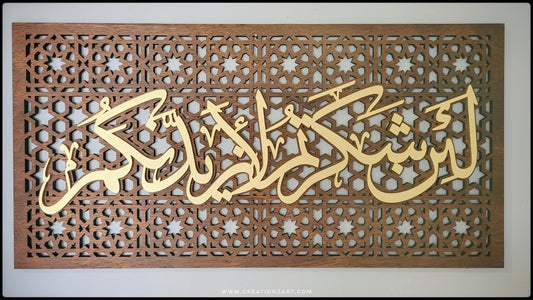 لَئِن شَكَرْتُمْ لَأَزِيدَنَّكُمْ
WWW.CREATIONZART.COM